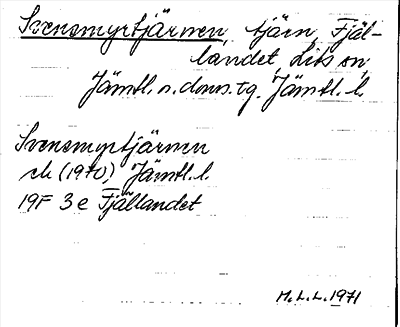 Svensmyrtjärnen, tjärn, Fjäl-
landet, Lits sn,
Jämtl. n. doms.tg. Jämtl. l.
Svensmyrtjärnen
ek (1970) Jämtl. l.
19F 3e Fjällandet
M. L. L. 1971